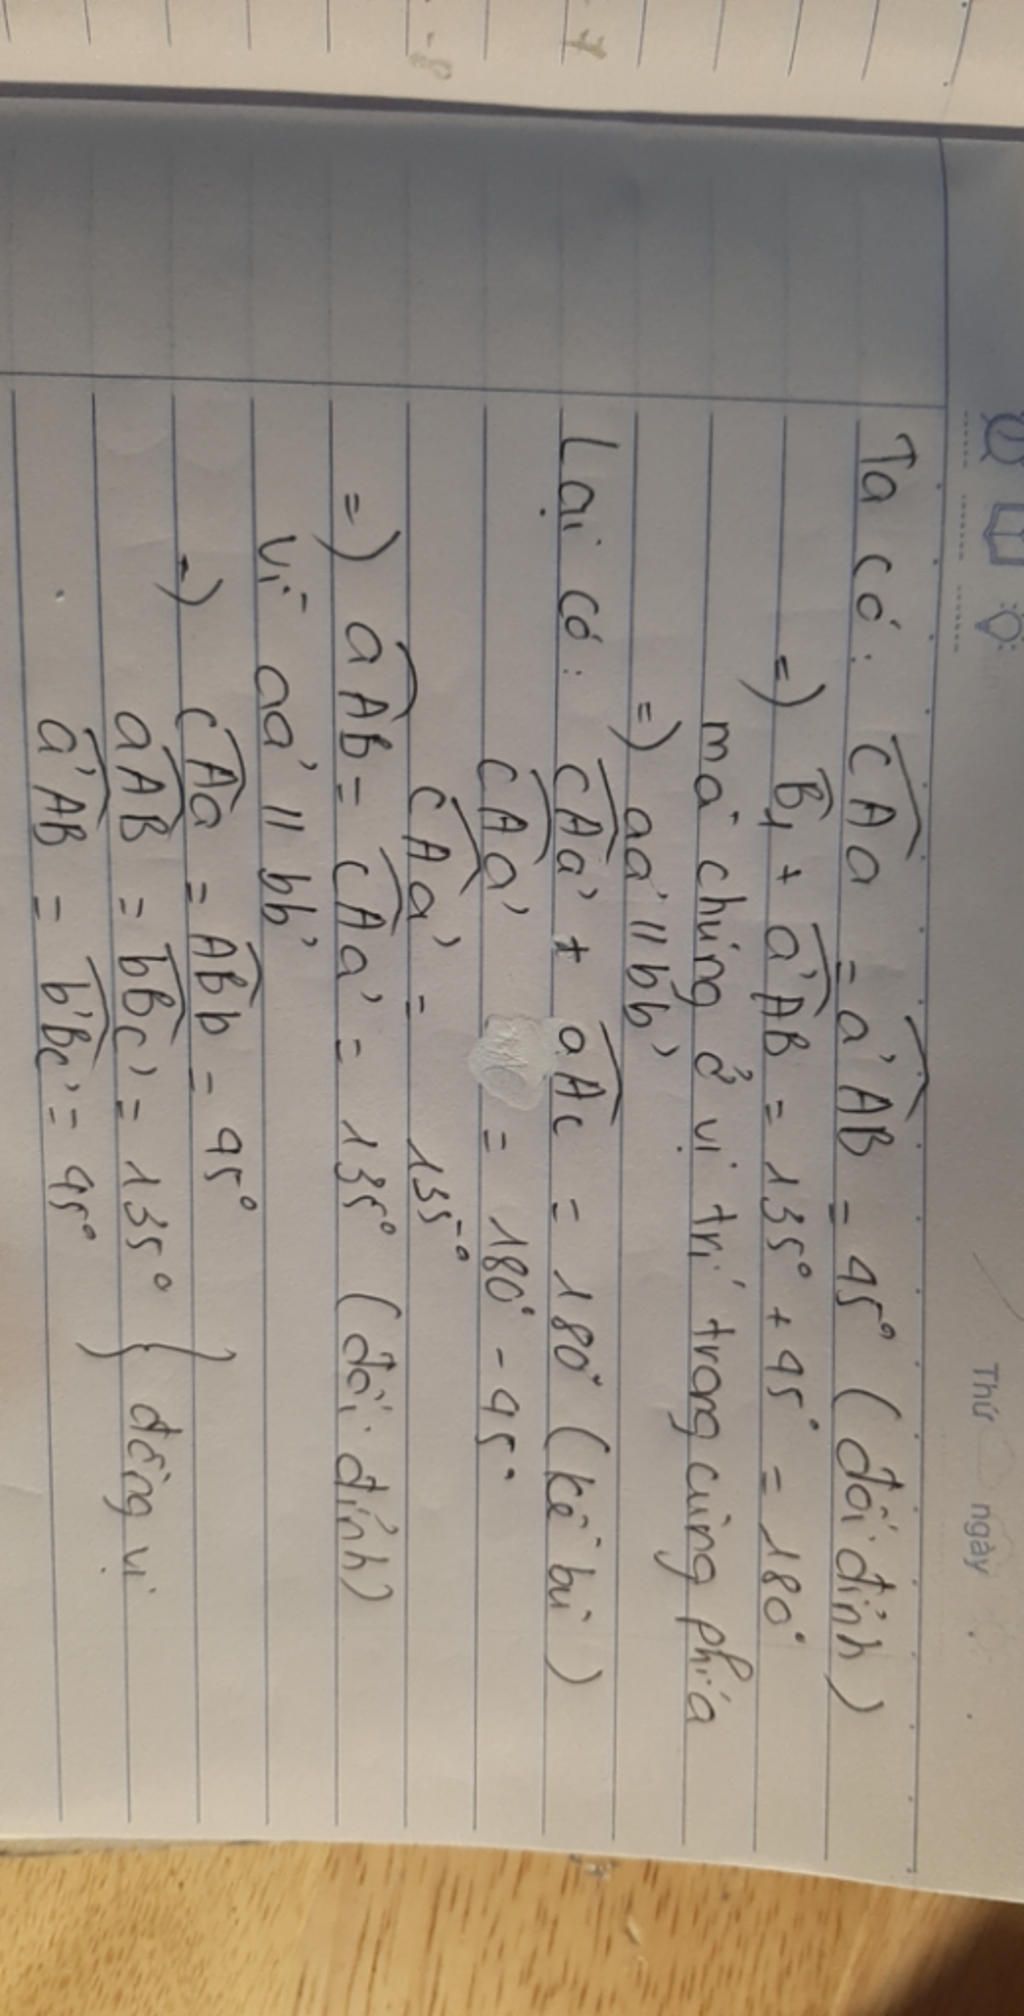 Thứ ngày
Ta có: cAa = a'AB = 45° (đối đỉnh)
=) B1 + a'AB = 135° + 45° = 180°
mà chúng ở vị trí trong cùng phía
=) aa' // bb'
Lại có: cAa' + aAc = 180° (kề bù)
cAa' = 180° - 45°
cAa' = 135°
=) aAB = cAa' = 135° (đối đỉnh)
Vì aa' // bb'
=) cAa = ABb = 45°
aAB = bBc' = 135° } đồng vị
a'AB = b'Bc' = 45°